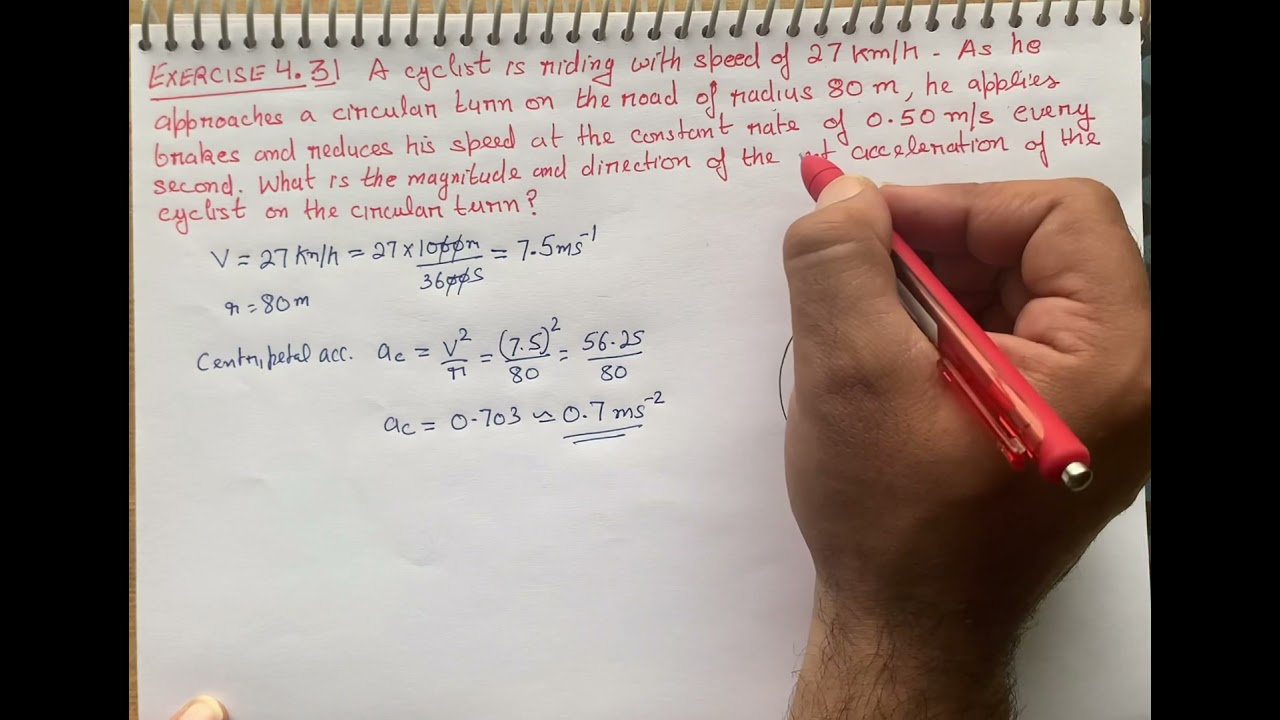 EXERCISE 4.31 A cyclist is riding with speed of 27 km/h. As he
approaches a circular turn on the road of radius 80 m, he applies
brakes and reduces his speed at the constant rate of 0.50 m/s every
second. What is the magnitude and direction of the net acceleration of the
cyclist on the circular turn?
V = 27 km/h = 27 × 1000m / 3600s = 7.5 ms⁻¹
r = 80 m
Centripetal acc. ac = V²/r = (7.5)²/80 = 56.25/80
ac = 0.703 ≃ 0.7 ms⁻²